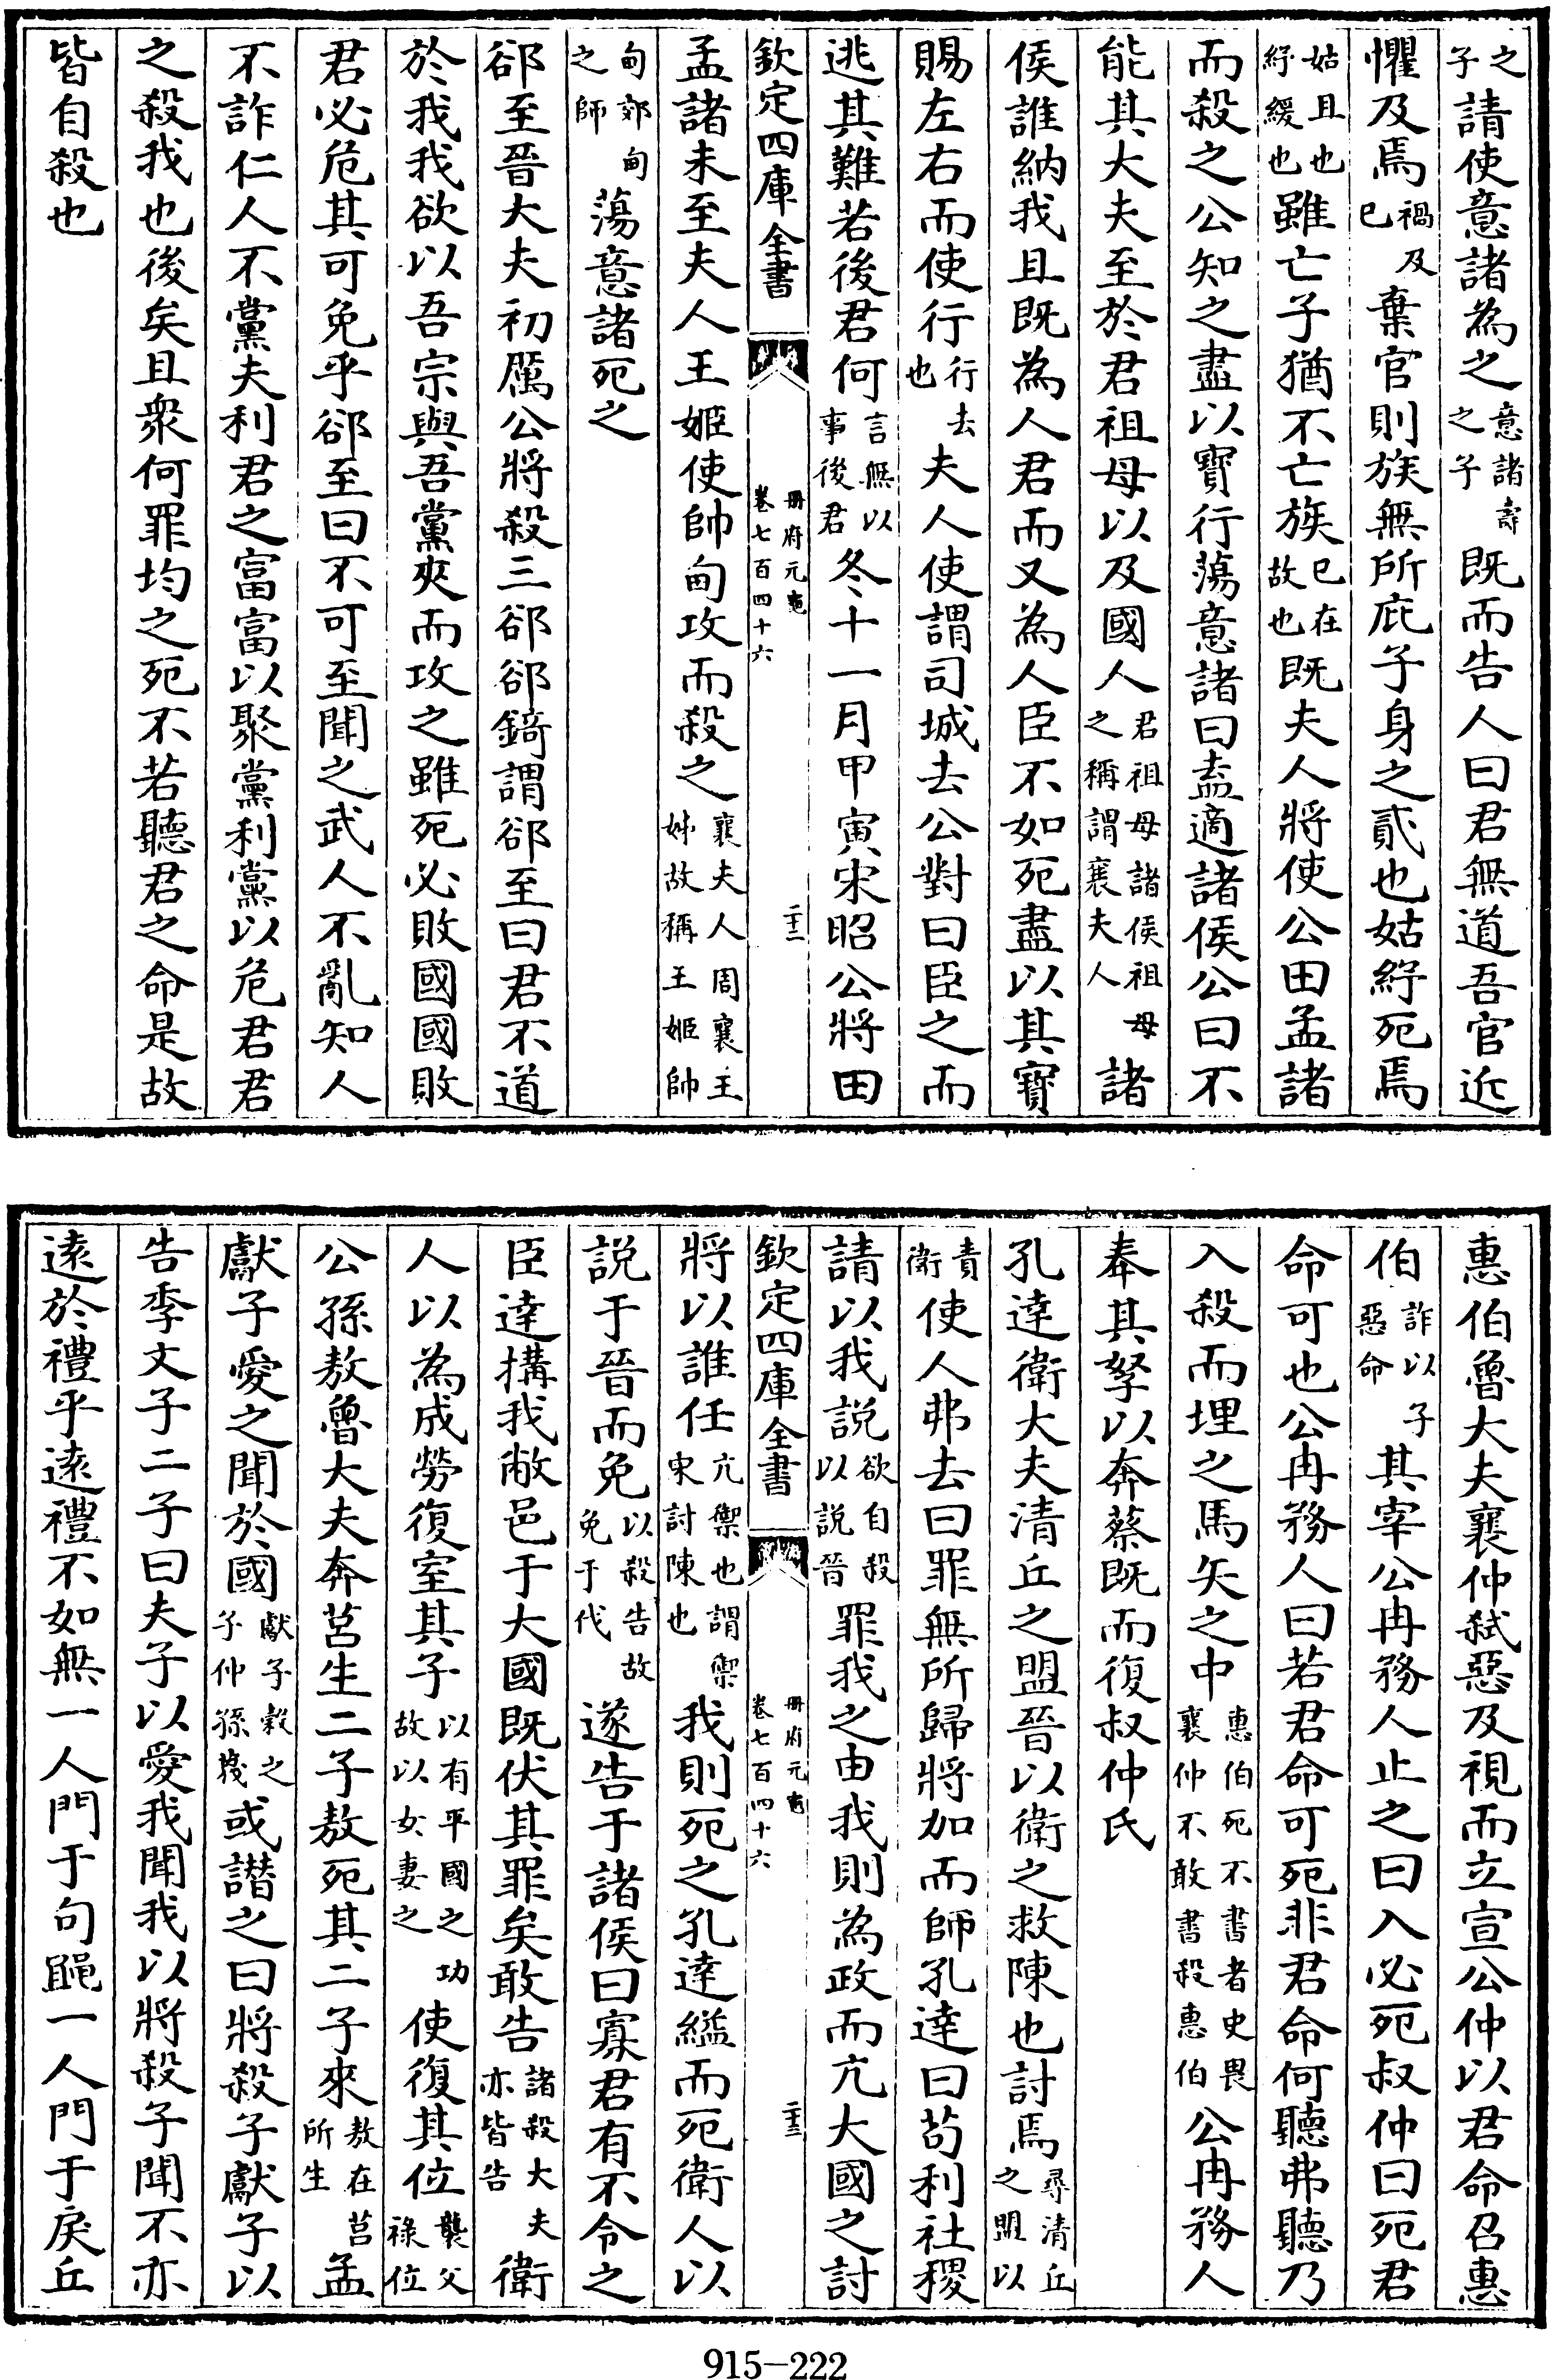 之子請使意諸為之意諸壽之子既而告人曰君無道吾官近
懼及焉禍及已棄官則族無所庇子身之貳也姑紓死焉
姑且也紓緩也雖亡子猶不亡族已在故也既夫人將使公田孟諸
而殺之公知之盡以寶行蕩意諸曰盍適諸侯公曰不
能其大夫至於君祖母以及國人君祖母諸侯祖母之稱謂襄夫人諸
侯誰納我且既為人君而又為人臣不如死盡以其寶
賜左右而使行行去也夫人使謂司城去公對曰臣之而
逃其難若後君何言無以事後君冬十一月甲寅宋昭公將田
欽定四庫全書 冊府元龜卷七百四十六 二十二
孟諸未至夫人王姬使帥甸攻而殺之襄夫人周襄王姊故稱王姬帥
甸郊甸之師蕩意諸死之
郤至晉大夫初厲公將殺三郤郤錡謂郤至曰君不道
於我我欲以吾宗與吾黨夾而攻之雖死必敗國國敗
君必危其可免乎郤至曰不可至聞之武人不亂知人
不詐仁人不黨夫利君之富富以聚黨利黨以危君君
之殺我也後矣且衆何罪均之死不若聽君之命是故
皆自殺也
惠伯魯大夫襄仲弑惡及視而立宣公仲以君命召惠
伯詐以子惡命其宰公冉務人止之曰入必死叔仲曰死君
命可也公冉務人曰若君命可死非君命何聽弗聽乃
入殺而埋之馬矢之中惠伯死不書者史畏襄仲不敢書殺惠伯公冉務人
奉其孥以奔蔡既而復叔仲氏
孔達衛大夫清丘之盟晉以衛之救陳也討焉尋清丘之盟以
責衛使人弗去曰罪無所歸將加而師孔達曰茍利社稷
請以我説欲自殺以説晉罪我之由我則為政而亢大國之討
欽定四庫全書 冊府元龜卷七百四十六 二十三
將以誰任亢禦也謂禦宋討陳也我則死之孔達縊而死衛人以
説于晉而免以殺告故免于伐遂告于諸侯曰寡君有不令之
臣達搆我敝邑于大國既伏其罪矣敢告諸殺大夫亦皆告衛
人以為成勞復室其子以有平國之功故以女妻之使復其位襲父祿位
公孫敖魯大夫奔莒生二子敖死其二子來敖在莒所生孟
獻子愛之聞於國獻子穀之子仲孫蔑或譖之曰將殺子獻子以
告季文子二子曰夫子以愛我聞我以將殺子聞不亦
遠於禮乎遠禮不如無一人門于句鼆一人門于戾丘
915-222